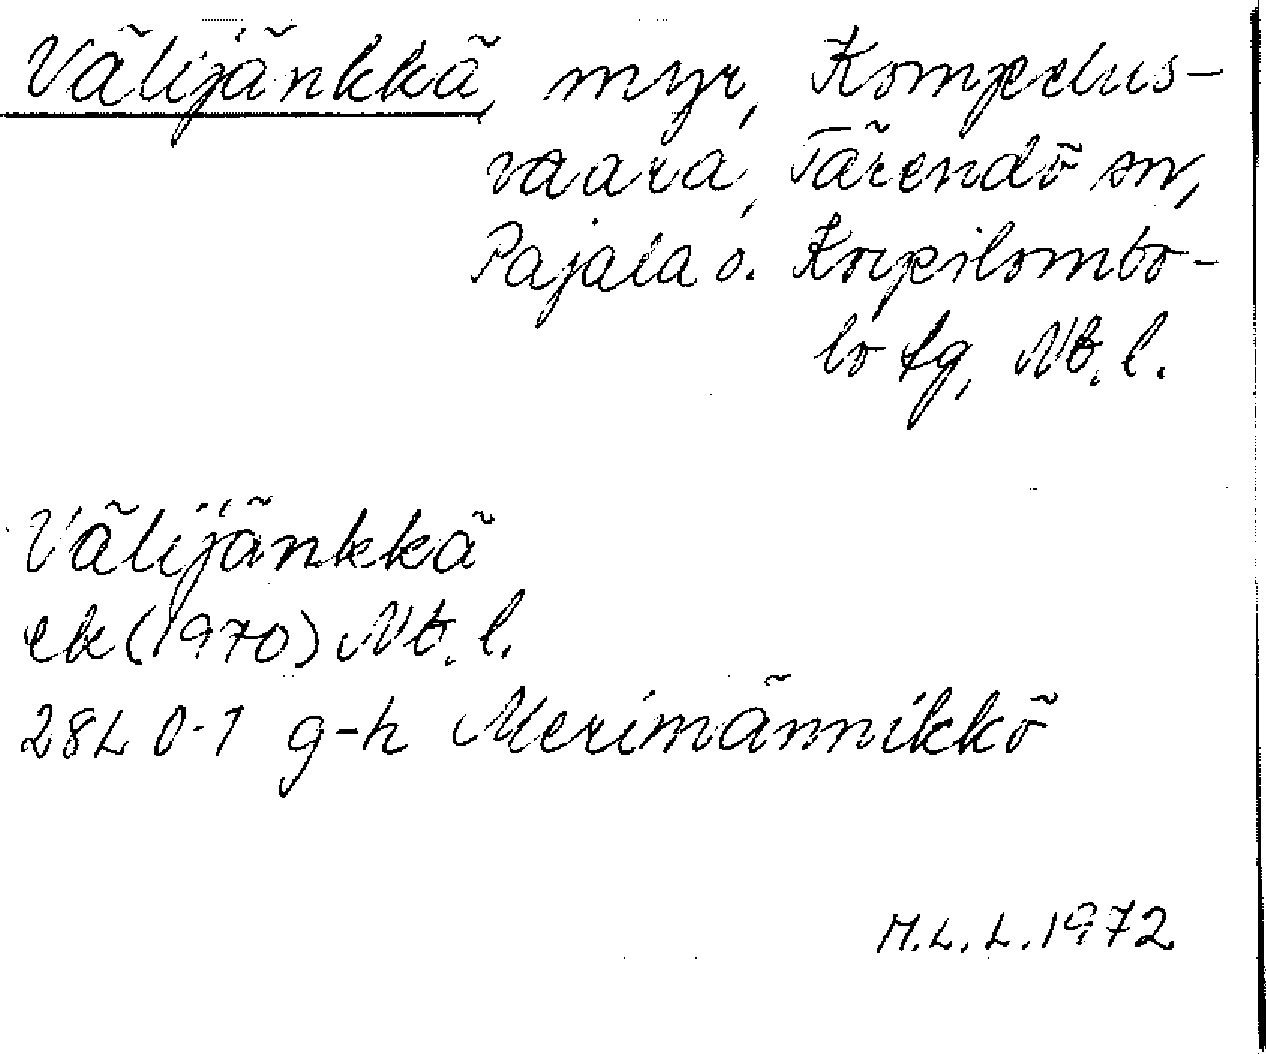 Välijänkkä, myr, Kompelus-
vaara, Tärendö sn,
Pajala o. Korpilombo-
lo tg, Nb. l.
Välijänkkä
ek (1970) Nb. l.
28L 0-1 g-h Merimännikkö
M.L.L. 1972